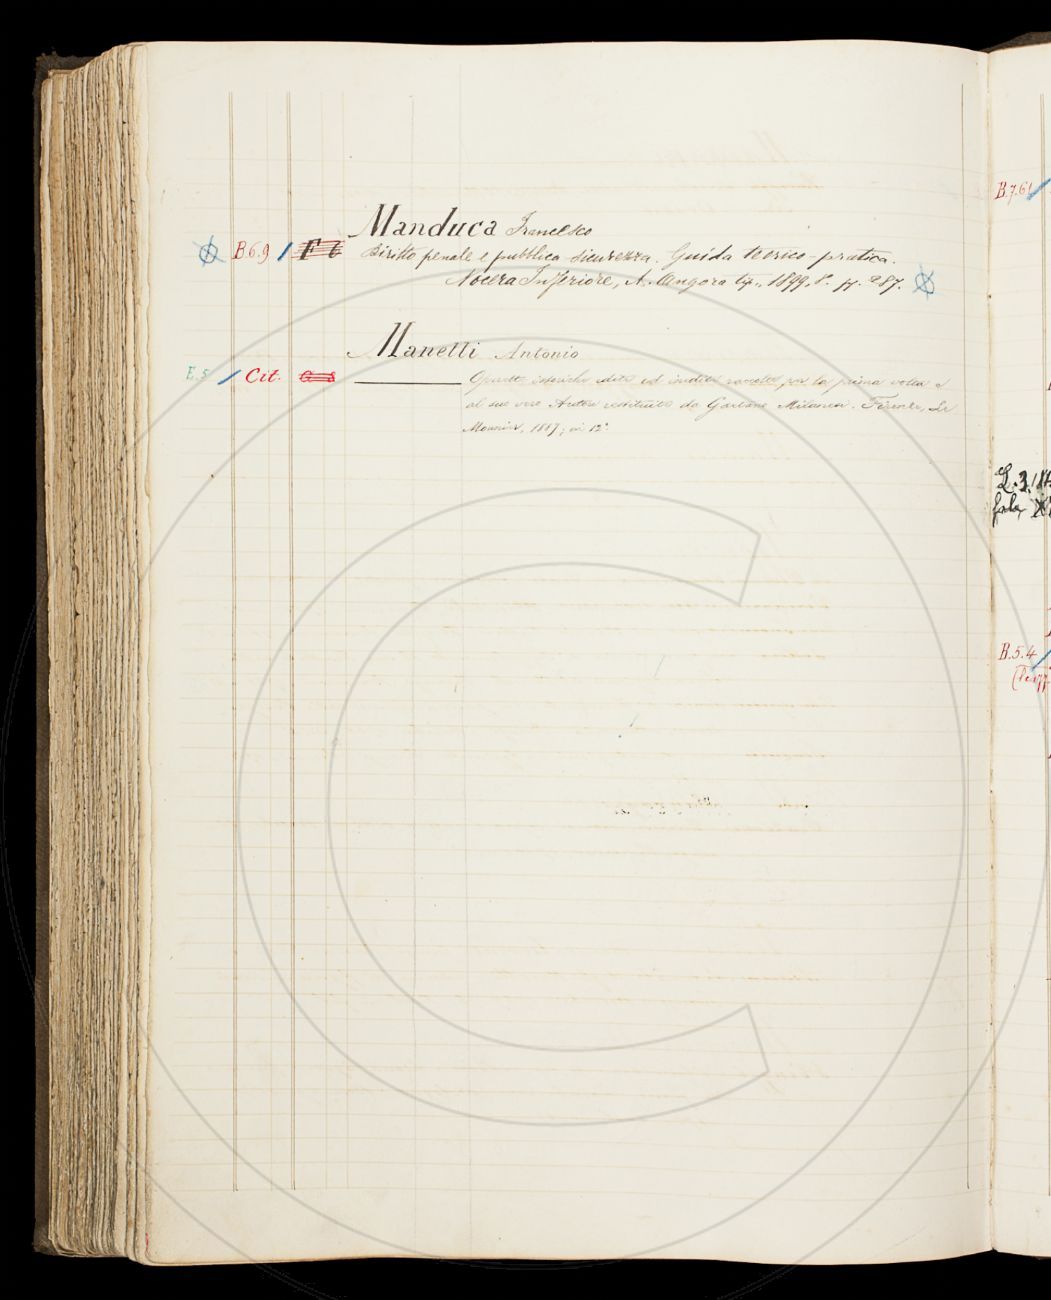 Manduca Francesco
B.6.9 F 6 Diritto penale e pubblica sicurezza. Guida teorico-pratica.
Nocera Inferiore, A. Angora tip., 1899, 8.° p. 287.
Manetti Antonio
E.5 Cit. G 8 Operette istoriche edite ed inedite raccolte per la prima volta e
al suo vero Autore restituite da Gaetano Milanesi. Firenze, Le
Monnier, 1887; in 12°
B.7.61
B.5.4